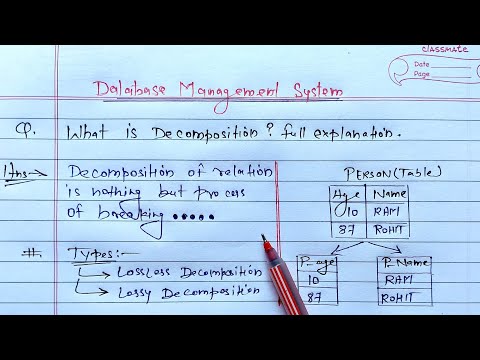 classmate
Date
Page
Database Management System
Q. What is Decomposition? full explanation.
Ans→ Decomposition of relation
is nothing but process
of breaking .....
# Types:-
Lossless Decomposition
Lossy Decomposition
PERSON(Table)
Age Name
10 RAM
87 ROHIT
P_age P_Name
10 RAM
87 ROHIT